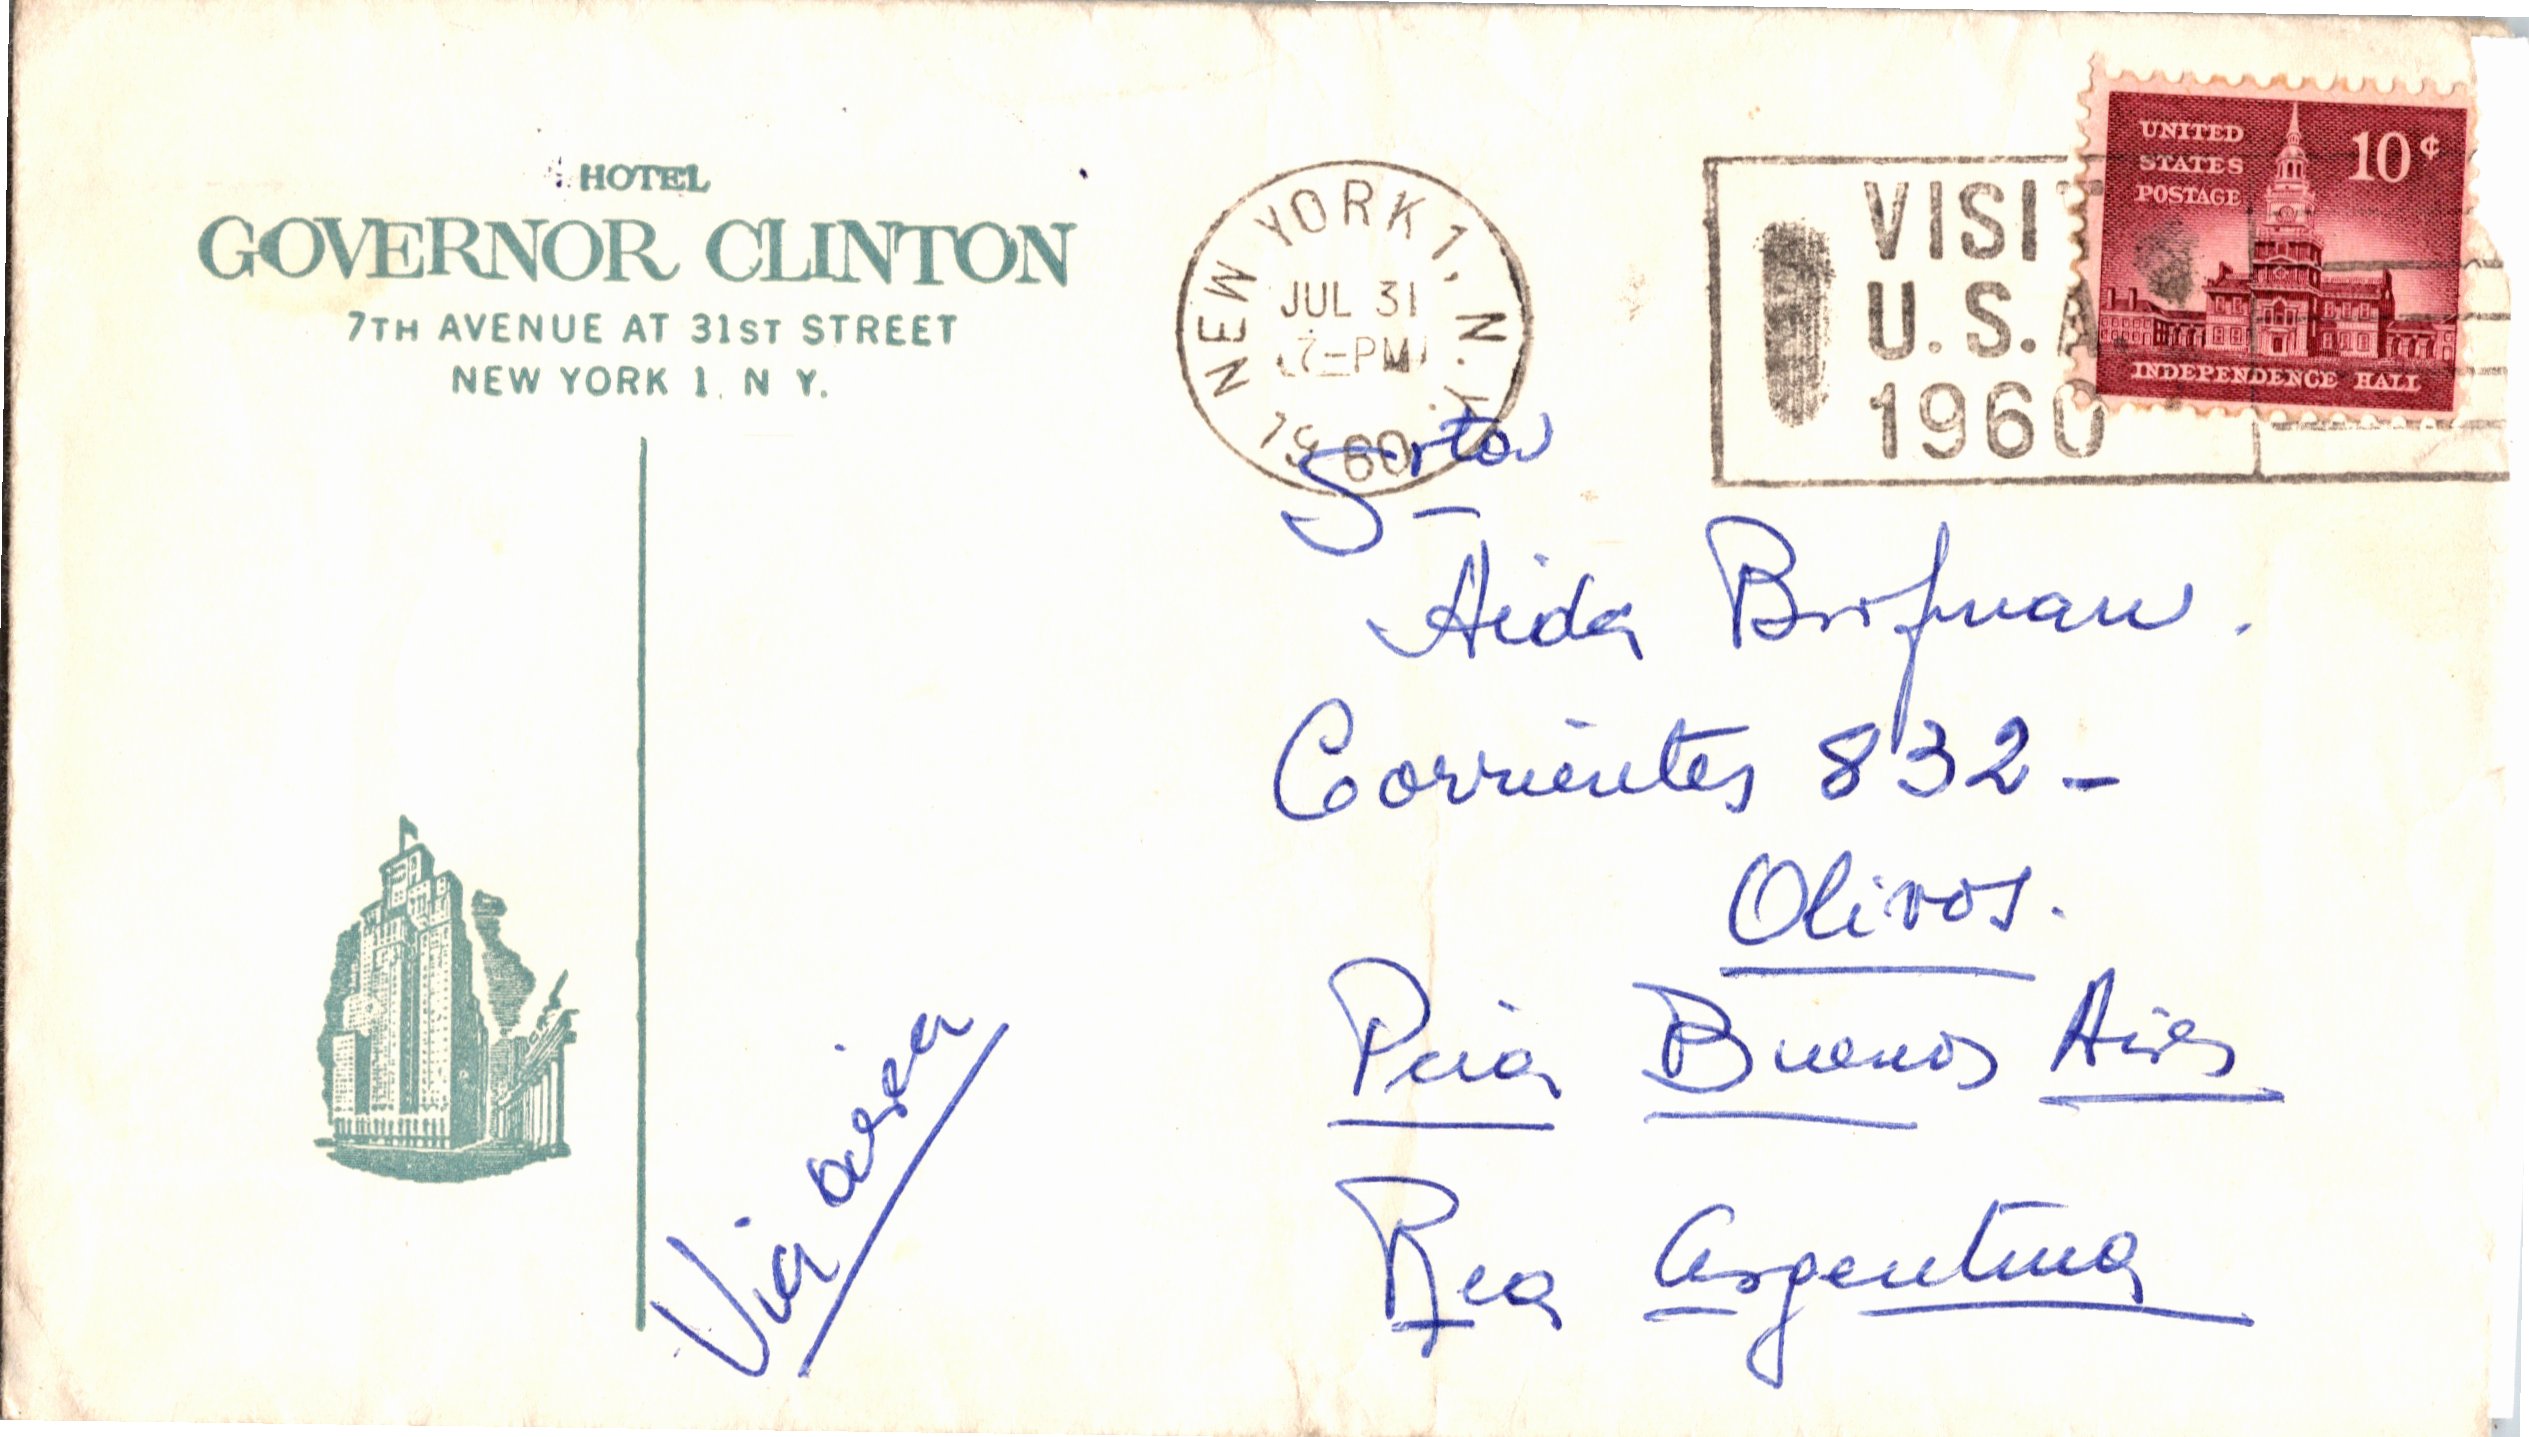 HOTEL
GOVERNOR CLINTON
7TH AVENUE AT 31ST STREET
NEW YORK 1, N Y.
NEW YORK 1, N.Y.
JUL 31
7-PM
1960
VISIT
U.S.A.
1960
UNITED
STATES
POSTAGE
10¢
INDEPENDENCE HALL
Srta
Aida Brofman.
Corrientes 832-
Olivos.
Pcia Buenos Aires
Rca Argentina
Via aérea